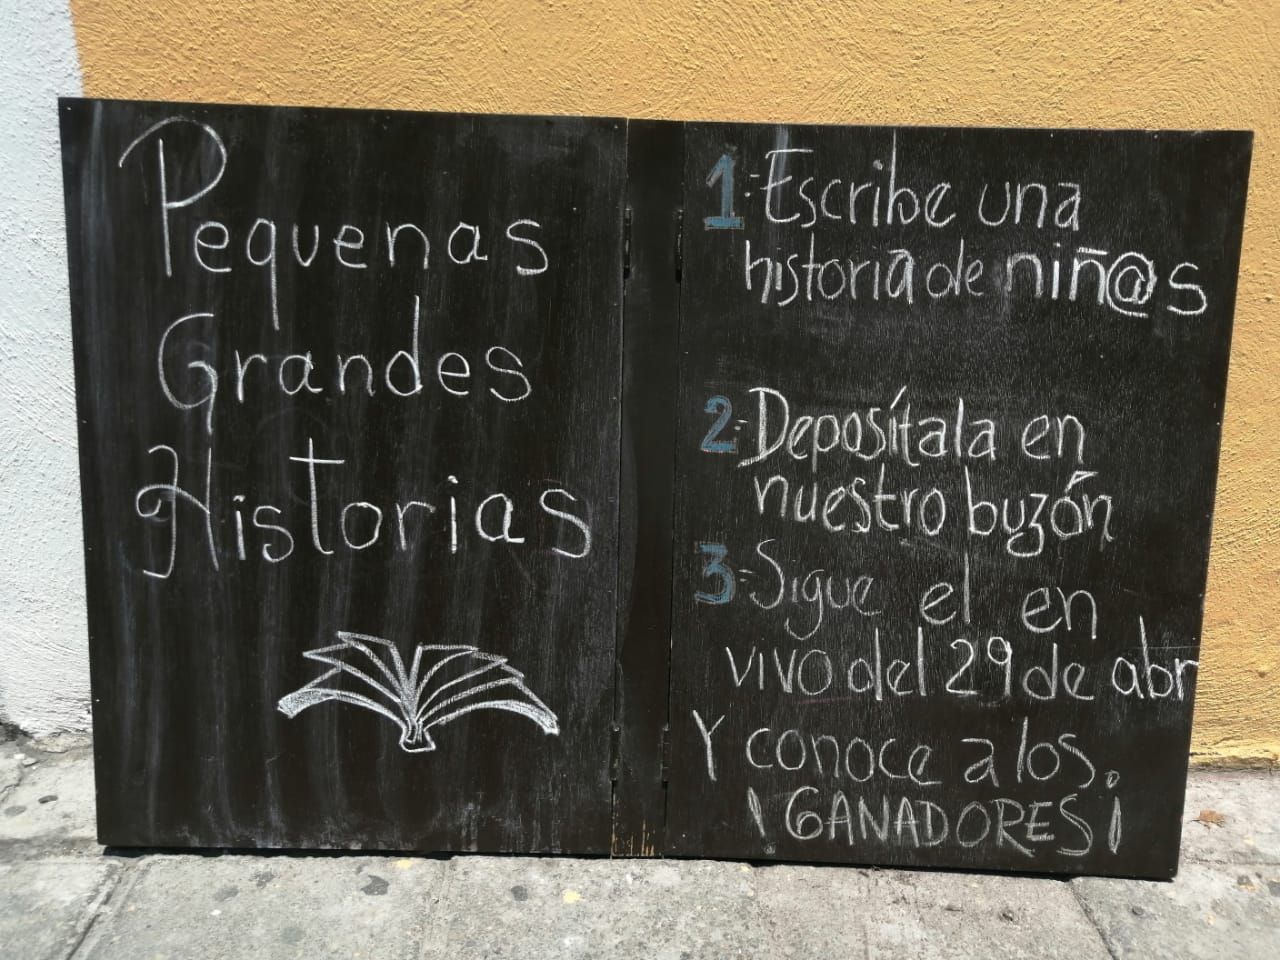 Pequenas
Grandes
Historias
1-Escribe una
historia de niñ@s
2-Deposítala en
nuestro buzón
3-Sigue el en
vivo del 29 de abr
Y conoce a los.
¡GANADORES¡